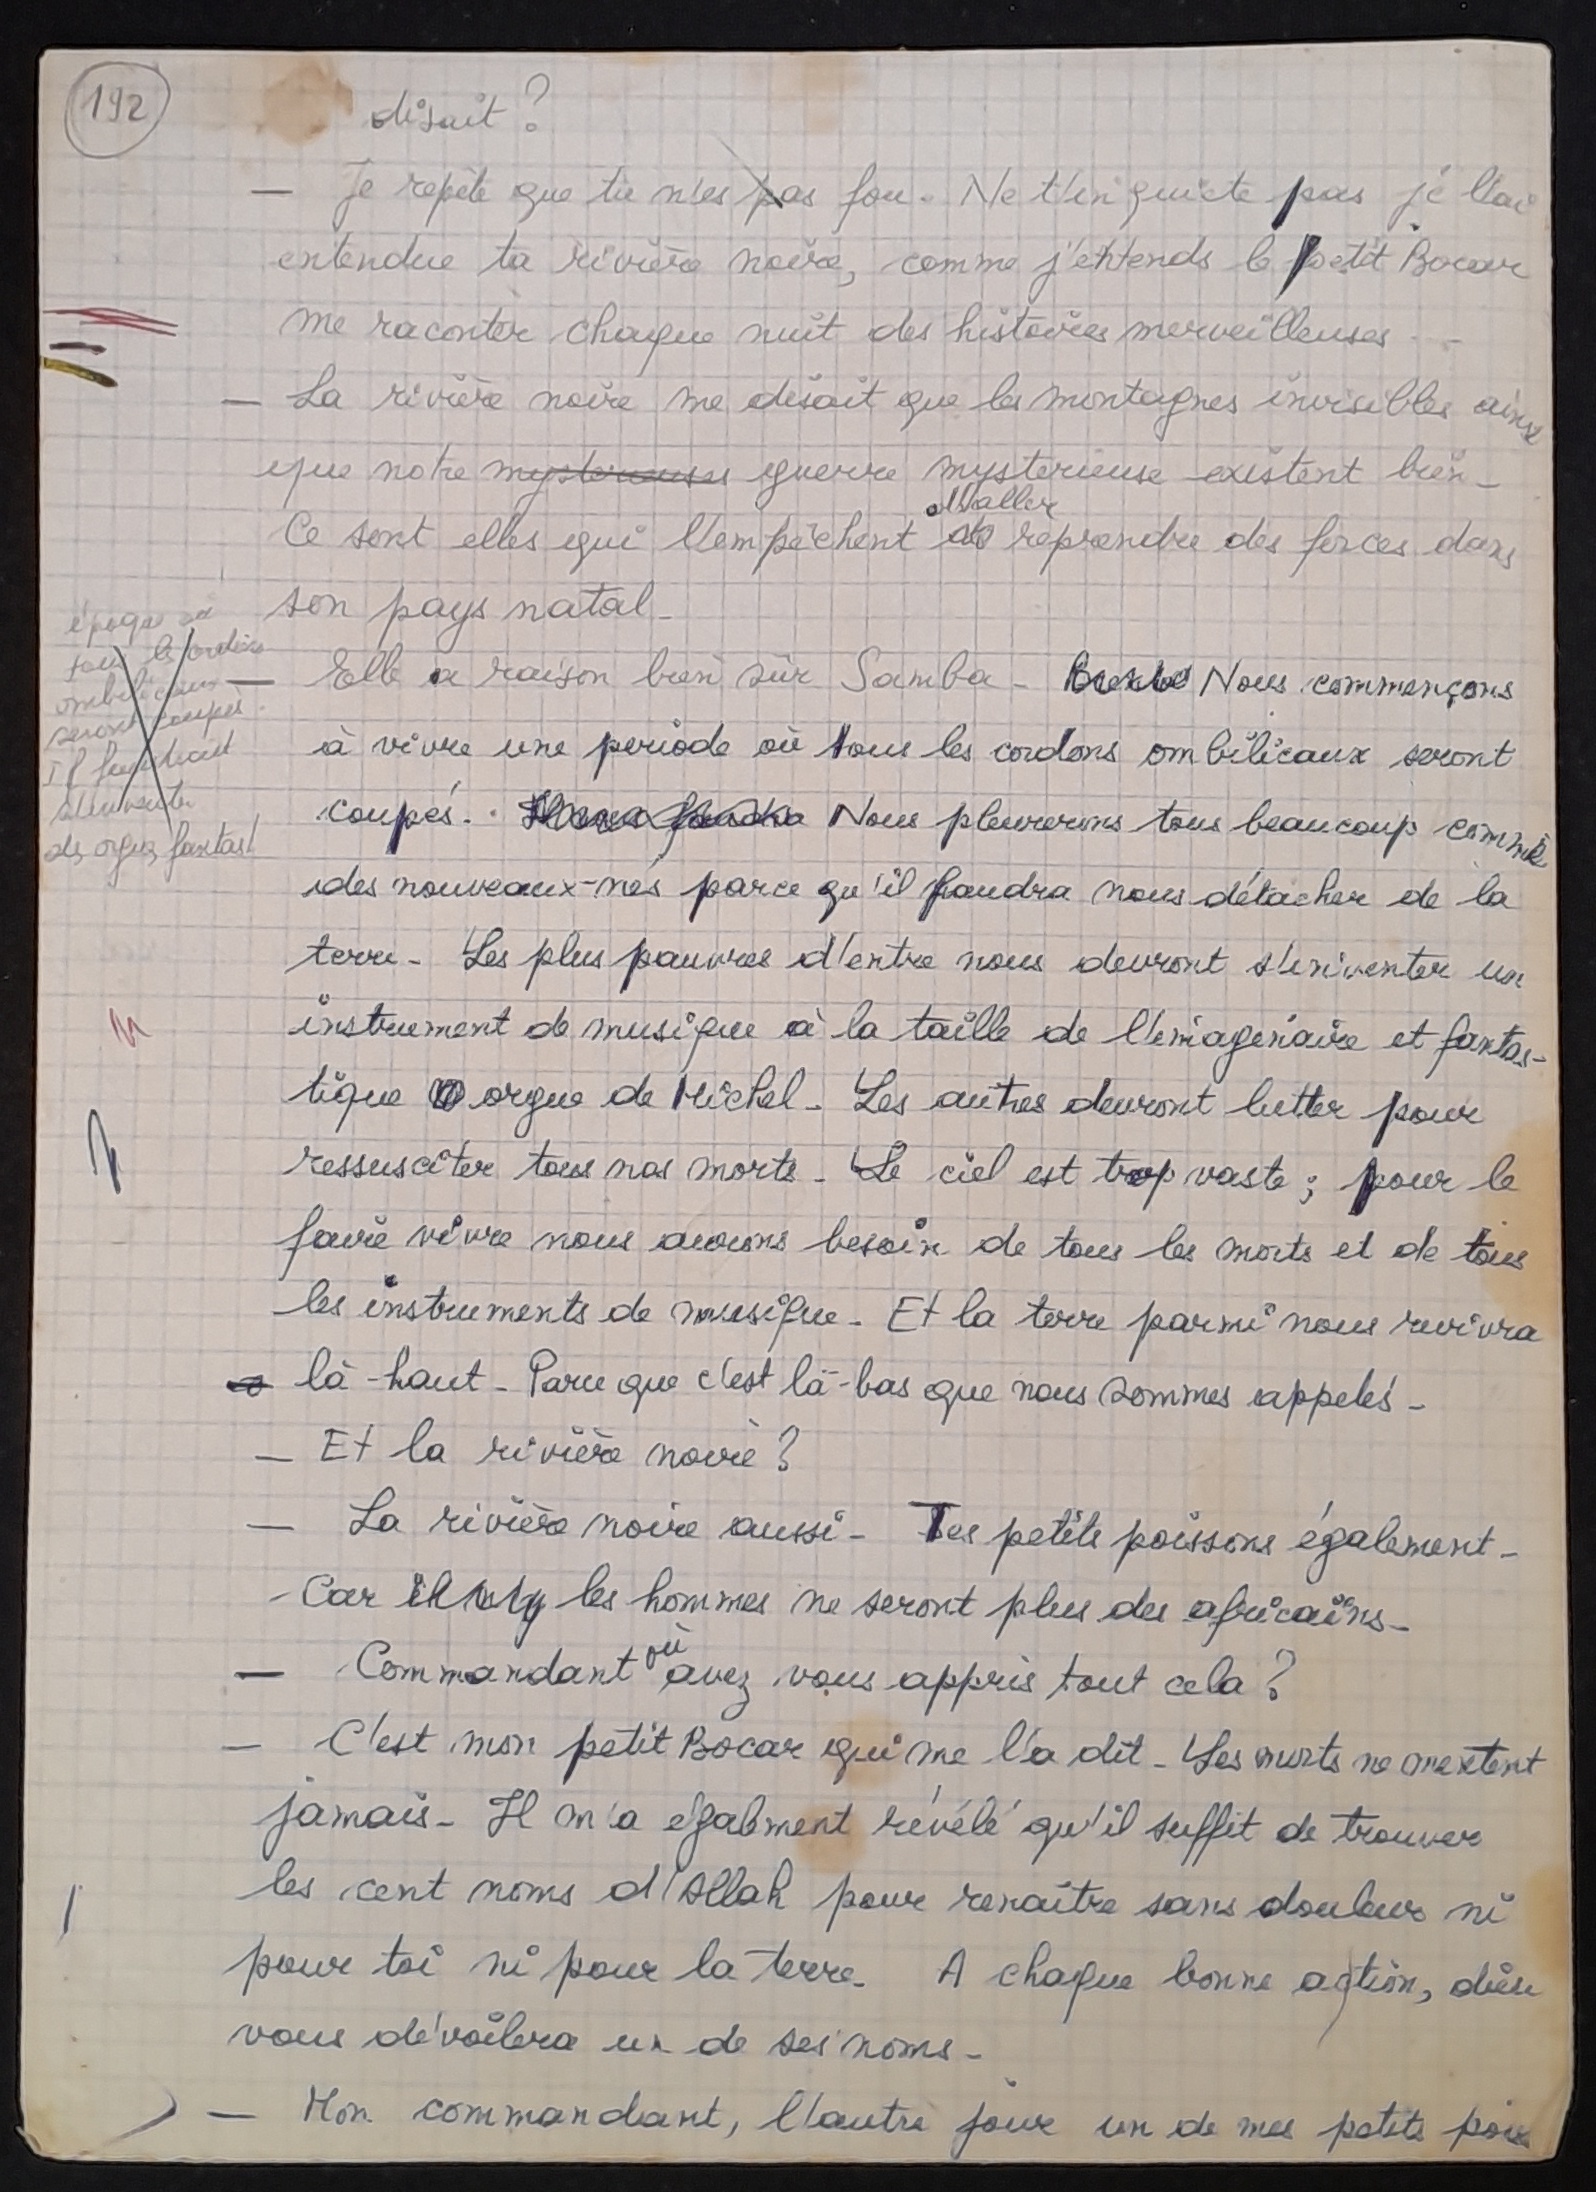 192
disait ?
— Je repète que tu n'es pas fou. Ne t'inquiete pas je l'ai
entendue ta rivière noire, comme j'entends le petit Bocar
me raconter chaque nuit des histoires merveilleuses ...
— La rivière noire me disait que les montagnes invisibles ainsi
que notre mysterieuses guerre mysterieuse existent bien -
d'aller
Ce sont elles qui l'empêchent de reprendre des forces dans
son pays natal -
époque où
tous les cordons
ombilicaux
seront coupés.
Il faudrait
s'inventer
des orgues fantast
— Elle a raison bien sûr Samba - Nous commençons
à vivre une periode où tous les cordons ombilicaux seront
coupés. Nous pleurerons tous beaucoup comme
des nouveaux-nés parce qu'il faudra nous détacher de la
terre - Les plus pauvres d'entre nous devront s'inventer un
instrument de musique à la taille de l'imaginaire et fantas-
tique orgue de Michel - Les autres devront lutter pour
ressusciter tous nos morts - Le ciel est trop vaste ; pour le
faire vivre nous aurons besoin de tous les morts et de tous
les instruments de musique - Et la terre parmi nous revivra
là-haut - Parce que c'est là-bas que nous sommes appelés -
— Et la rivière noire ?
— La rivière noire aussi - Tes petits poissons également -
- Car les hommes ne seront plus des africains -
— Commandant où avez vous appris tout cela ?
— C'est mon petit Bocar qui me l'a dit - Les morts ne mentent
jamais - Il m'a également révélé qu'il suffit de trouver
les cent noms d'Allah pour renaître sans douleur ni
pour toi ni pour la terre. A chaque bonne action, dieu
vous dévoilera un de ses noms -
— Mon commandant, l'autre jour un de mes petits pois